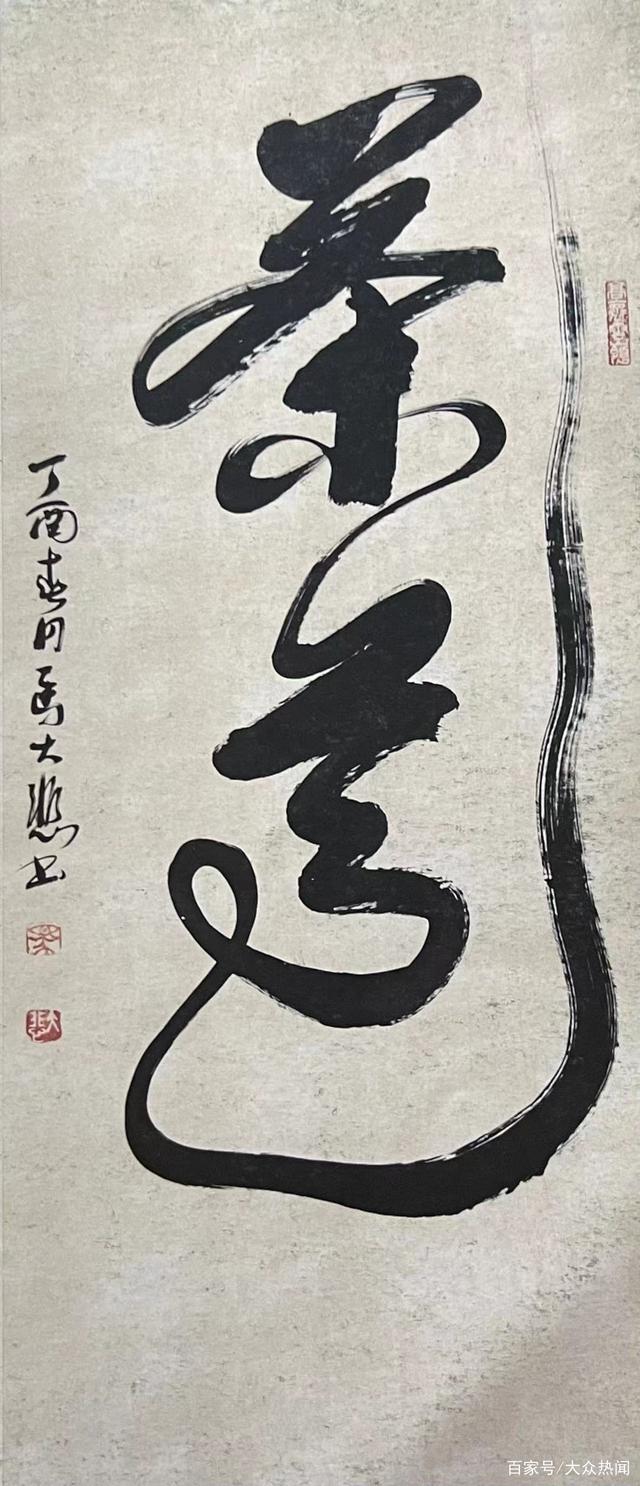 茶道
丁酉春月馬大悲书
百家号/大众热闻